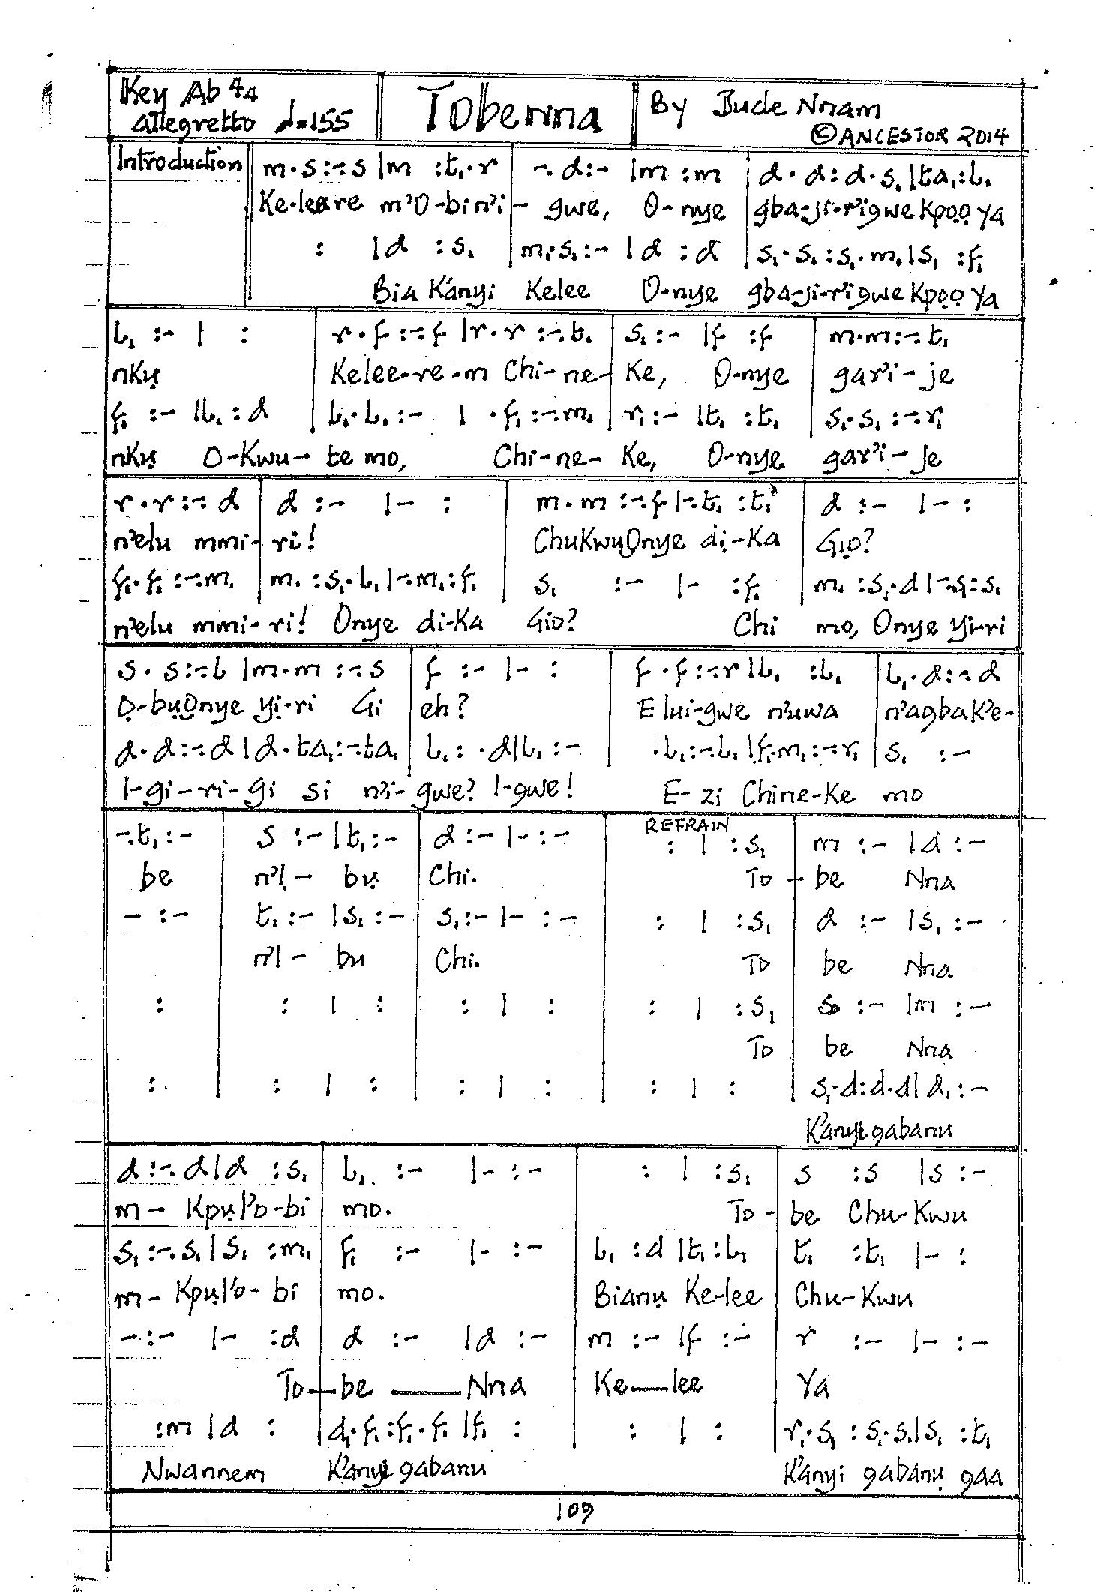 Key Ab 4/4 Tobenna By Jude Nnam
Allegretto d=155 ©ANCESTOR 2014
Introduction m·s:-:s |m :t₁·r | -·d:- |m :m | d·d:d·s₁|ta₁:l₁
Ke-leere m'O-bin'i- gwe, O-nye gba-ji-r'igwe Kpọọ Ya
: |d :s₁ | m₁·s₁:- |d :d | s₁·s₁:s₁·m₁|s₁ :f₁
Bia Kanyi Kelee O-nye gba-ji-r'igwe Kpọọ Ya
l₁ :- | : | r·f:-:f |r·r:-:t₁ | s₁:- |f :f | m·m:-:t₁
nkụ Kelee-re-m Chi-ne- Ke, O-nye gar'i-je
f₁ :- |l₁ :d | l₁·l₁:- | ·f₁:-:m₁ | r₁:- |t₁ :t₁ | s₁·s₁:-:r₁
nkụ O-Kwu- te mo, Chi-ne- Ke, O-nye gar'i-je
r·r:-:d | d :- |- : | m·m:-:f|-:t₁ :t₁ | d :- |- :
n'elu mmi- ri! ChukwuOnye dị-Ka Gịọ?
f₁·f₁:-:m₁ | m₁ :s₁·l₁|-:m₁:f₁ | s₁ :- |- :f₁ | m₁ :s₁·d|-:s₁:s₁
n'elu mmi-ri! Onye di-Ka Gịọ? Chi mo, Onye yi-ri
s·s:-:l |m·m:-:s | f :- |- : | f·f:-:r|l₁ :l₁ | l₁·d:-:d
Ọ-bụOnye yi-ri Gi eh? Elui-gwe n'uwa n'agbaK'e-
d·d:-:d|d·ta₁:-:ta₁ | l₁: ·d|l₁:- | ·l₁:-:l₁|f₁·m₁:-:r₁ | s₁ :-
I-gi-ri-gi si n'i-gwe? I-gwe! E-zi Chine-Ke mo
-:t₁:- | s :-|t₁:- | d:-|-:- | REFRAIN : | :s₁ | m :- |d :-
be n'I- bụ Chi. To - be Nna
- :- | t₁:- |s₁:- | s₁:-|- :- | : | :s₁ | d :- |s₁ :-
n'I- bu Chi. To be Nna
: | : | : | : | : | : | :s₁ | s :- |m :-
To be Nna
: | : | : | : | : | : | : | s₁·d:d·d|d₁:-
Kanyị gabanu
d:-:d|d :s₁ | l₁ :- |- :- | : | :s₁ | s :s |s :-
m- Kpụl'o-bi mo. To- be Chu-Kwu
s₁:-:s₁|s₁ :m₁ | f₁ :- |- :- | l₁ :d |t₁:l₁ | t₁ :t₁ |- :
m- Kpụl'o-bi mo. Bianụ Ke-lee Chu-Kwu
-:- |- :d | d :- |d :- | m :- |f :- | r :- |- :-
To-be Nna Ke-lee Ya
:m |d : | d₁·f₁:f₁·f₁|f₁ : | : | : | r₁·s₁:s₁·s₁|s₁ :t₁
Nwannem Kanyị gabanu Kanyi gabanụ gaa
109